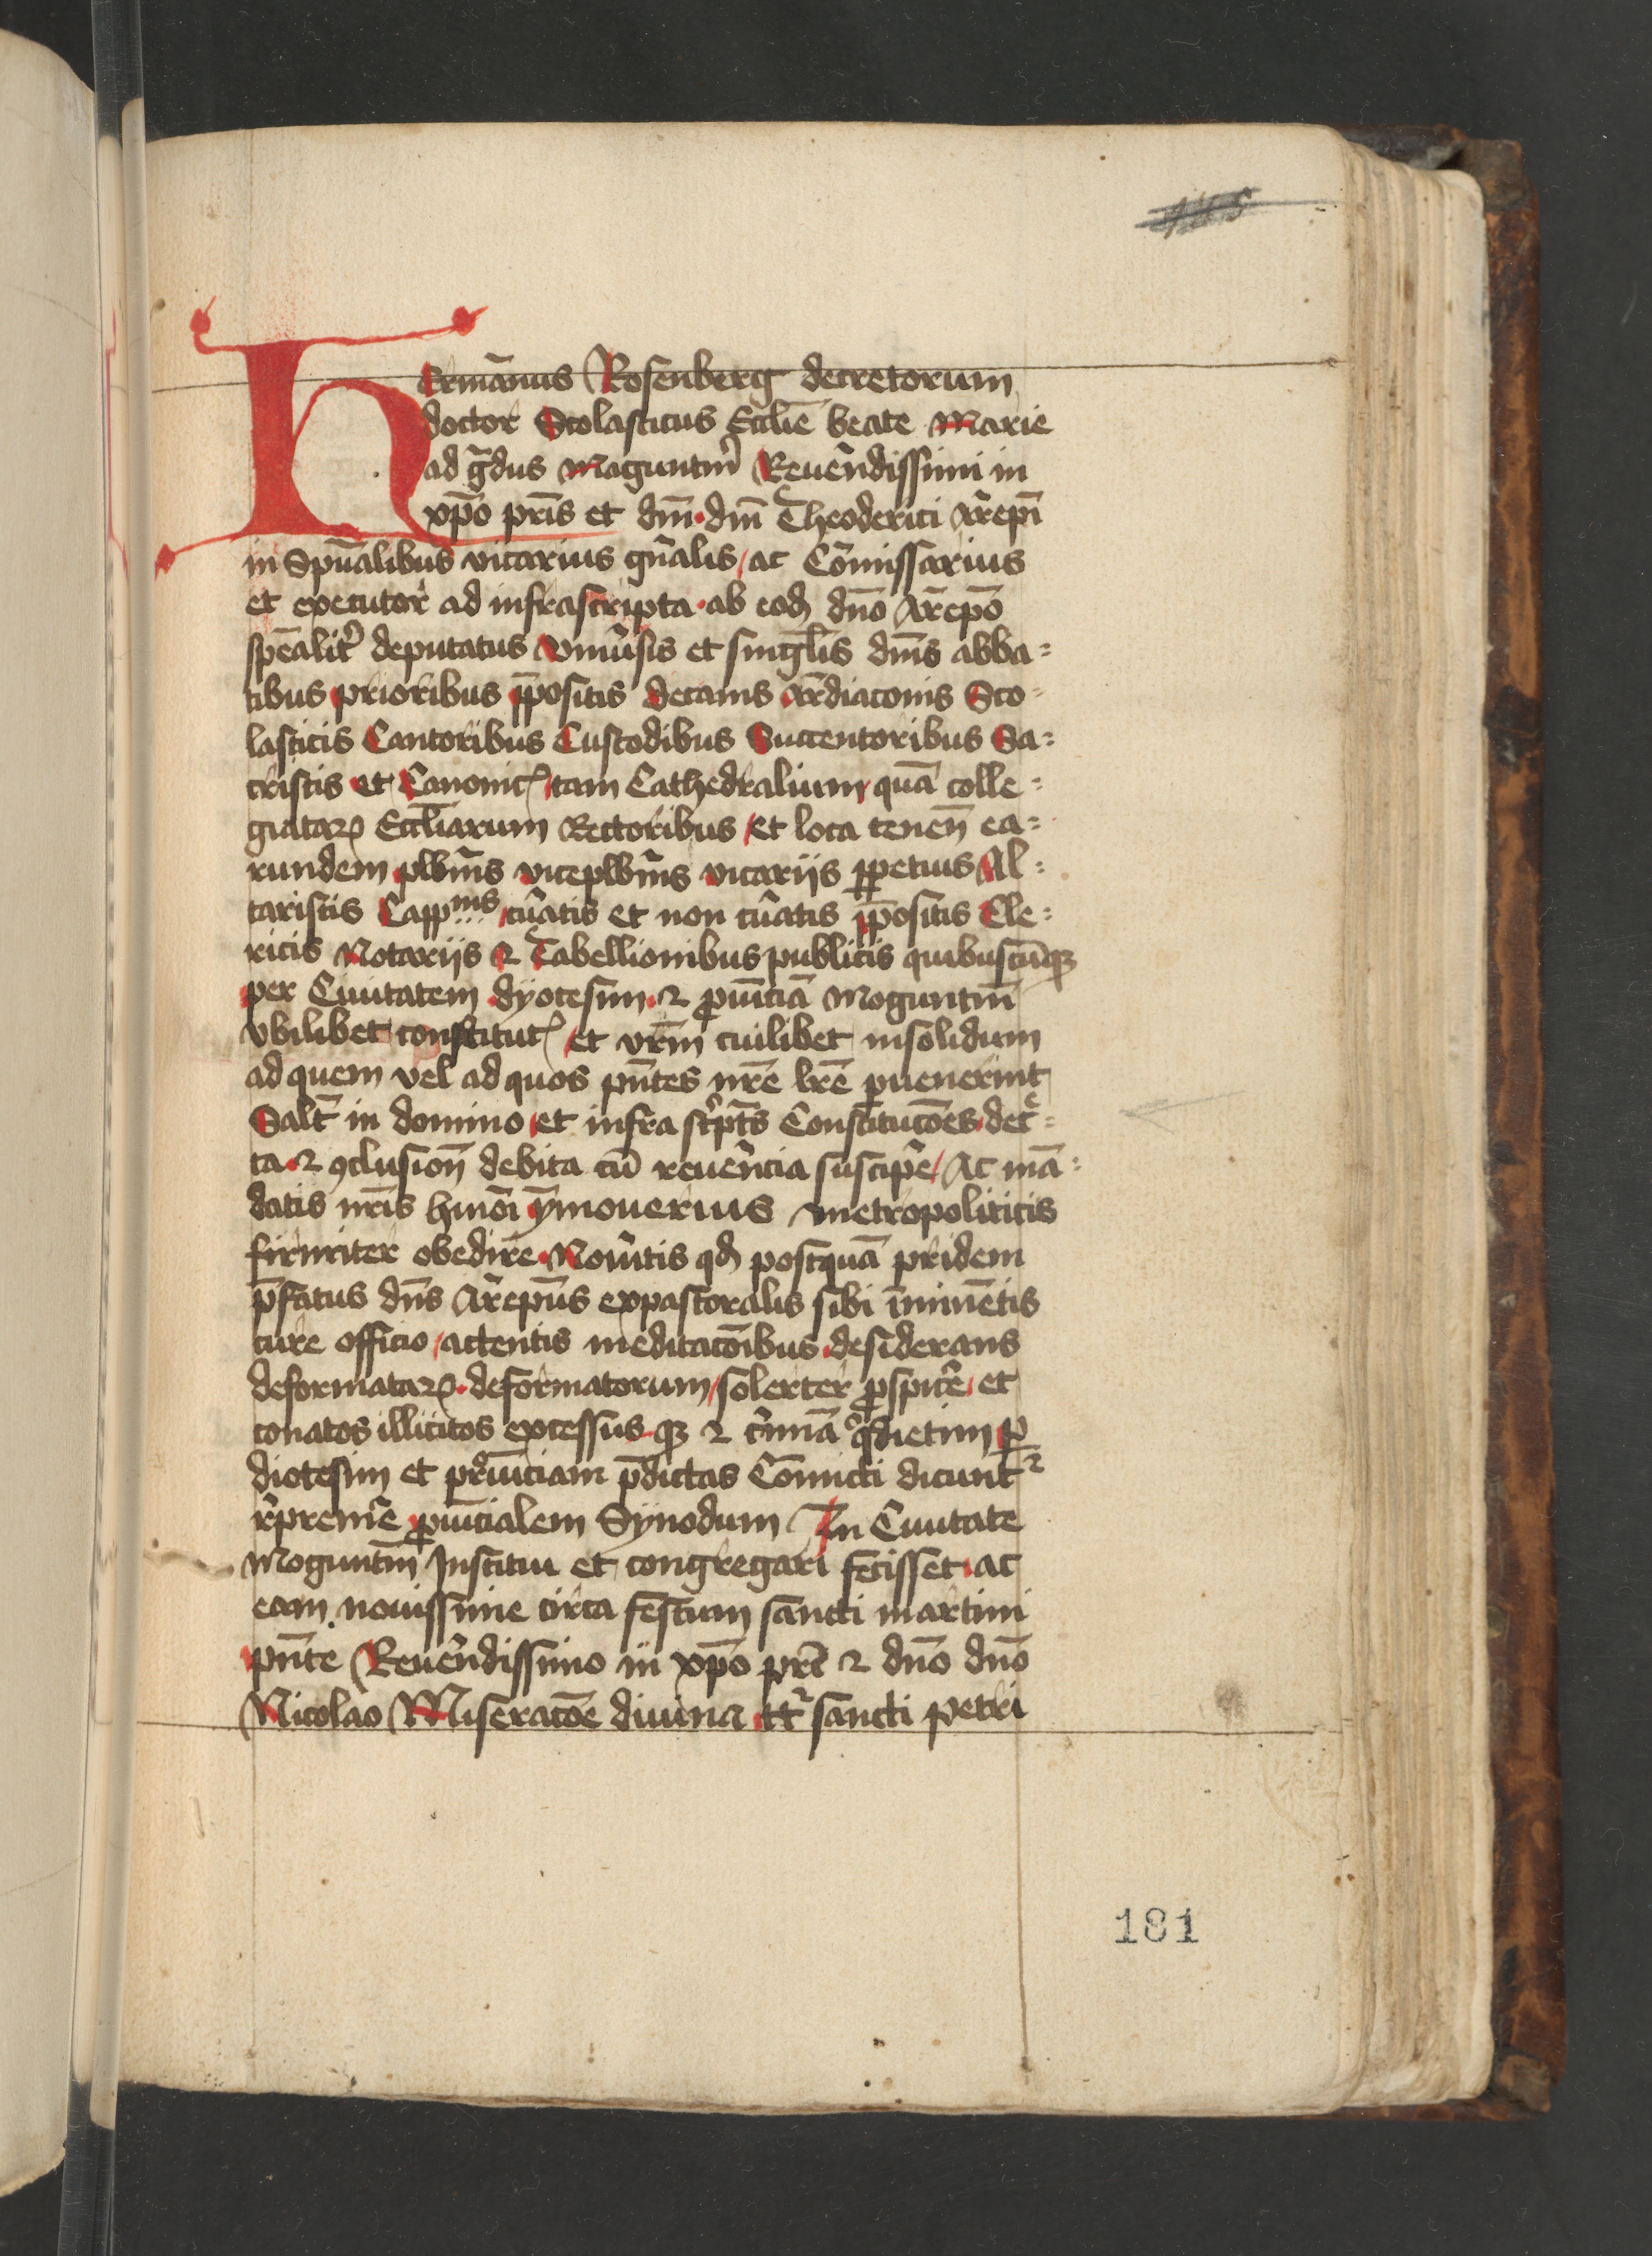 Hermānus Rosenberg decretorum
doctor Scolasticus Ecclīe beate Marie
ad g̃dus Maguntiñ Reuen̄dissimi in
xp̄o pr̄is et dn̄i dn̄i Theoderici Ar̄epī
in Spūalibus vicarius gn̄alis / ac Com̄issarius
et executor ad infrascripta ab eodȝ dn̄o Ar̄epō
sp̄ealit̾ deputatus Vniūsis et singl̄is dn̄is abba=
tibus prioribus p̄positis decanis Ar̄diaconis Sco=
lasticis Cantoribus Custodibus Succentoribus Sa=
cristis et Canonicꝭ tam Cathedralium quā colle=
giataꝝ Eccl̄iarum Rectoribus / et loca teneñ ea=
rundem plb̄nis viceplb̄nis vicarijs ꝑpetuis Al=
taristis Capp^nis cūatis et non cūatis īpositis Cle=
ricis Notarijs ⁊ Tabellionibus publicis quibuscūqȝ
per Ciuitatem dyocesim ⁊ ꝓuīciā Moguntiñ
vbilibet constitutꝭ / et vr̄m cuilibet insolidum
ad quem vel ad quos pn̄tes nr̄e lr̄e ꝑuenerint
Salt̄ in domino et infra sc̾pt̄s Constitucōes dec̾=
ta ⁊ ꝯclusioñ debita cū reuen̄cia suscip̄e / Ac mā=
datis nr̄is hmōi ẏmouerius metropoliticis
firmiter obedire Nou̾itis qd̄ postquā pridem
p̄fatus dn̄s Ar̄epūs expastoralis sibi īminētis
cure officio / actentis meditacōibus desiderans
deformataꝝ deformatorum / solerter ꝓspic̄e et
conatos illicitos excessus qȝ ⁊ c̾mīā q̊dietim ꝑ
diocesim et pr̊uīciam p̄dictas Cōmicti dicunt^r
r̾prem̄e ꝓuīcialem Synodum In Ciuitate
Moguntiñ Institui et congregari fecisset ac
eam nouissime circa festum sancti martini
pn̄te Reuen̄dissimo in xp̄o pr̄e ⁊ dn̄o dn̄o
Nicolao Miseracōe diuina tt̾ sancti petri
181